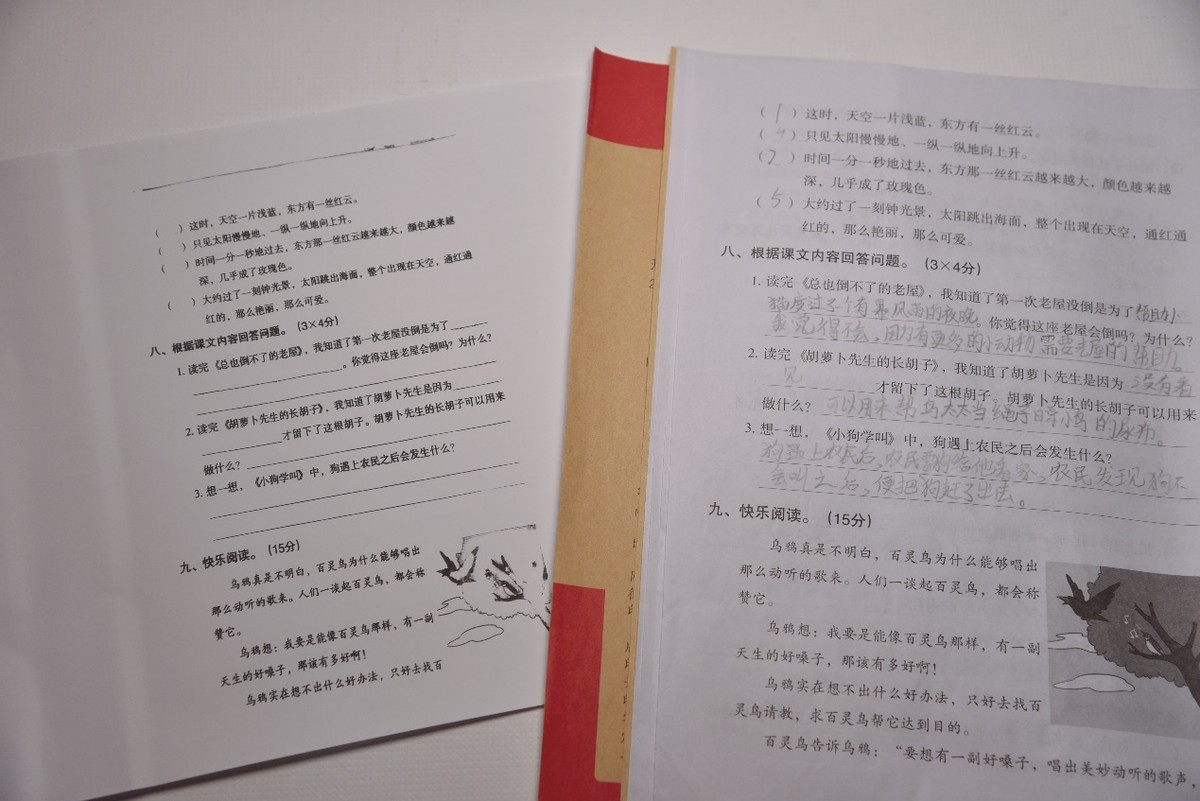 ( )这时，天空一片浅蓝，东方有一丝红云。
( )只见太阳慢慢地、一纵一纵地向上升。
( )时间一分一秒地过去，东方那一丝红云越来越大，颜色越来越
深，几乎成了玫瑰色。
( )大约过了一刻钟光景，太阳跳出海面，整个出现在天空，通红通
红的，那么艳丽，那么可爱。
八、根据课文内容回答问题。(3×4分)
1. 读完《总也倒不了的老屋》，我知道了第一次老屋没倒是为了
。你觉得这座老屋会倒吗？为什么？
2. 读完《胡萝卜先生的长胡子》，我知道了胡萝卜先生是因为
才留下了这根胡子。胡萝卜先生的长胡子可以用来
做什么？
3. 想一想，《小狗学叫》中，狗遇上农民之后会发生什么？
九、快乐阅读。(15分)
乌鸦真是不明白，百灵鸟为什么能够唱出
那么动听的歌来。人们一谈起百灵鸟，都会称
赞它。
乌鸦想：我要是能像百灵鸟那样，有一副
天生的好嗓子，那该有多好啊！
乌鸦实在想不出什么好办法，只好去找百
(1)这时，天空一片浅蓝，东方有一丝红云。
(4)只见太阳慢慢地、一纵一纵地向上升。
(2)时间一分一秒地过去，东方那一丝红云越来越大，颜色越来越
深，几乎成了玫瑰色。
(5)大约过了一刻钟光景，太阳跳出海面，整个出现在天空，通红通
红的，那么艳丽，那么可爱。
八、根据课文内容回答问题。(3×4分)
1. 读完《总也倒不了的老屋》，我知道了第一次老屋没倒是为了帮助小
猫度过了个有暴风雨的夜晚。你觉得这座老屋会倒吗？为什么？
我觉得不会，因为有更多的小动物需要老屋的帮助。
2. 读完《胡萝卜先生的长胡子》，我知道了胡萝卜先生是因为没有看
见才留下了这根胡子。胡萝卜先生的长胡子可以用来
做什么？可以用来帮鸟太太当绳子晾小鸟的尿布。
3. 想一想，《小狗学叫》中，狗遇上农民之后会发生什么？
狗遇上农民后，农民带狗给他看家，农民发现狗不
会叫之后，便把狗赶了出去。
九、快乐阅读。(15分)
乌鸦真是不明白，百灵鸟为什么能够唱出
那么动听的歌来。人们一谈起百灵鸟，都会称
赞它。
乌鸦想：我要是能像百灵鸟那样，有一副
天生的好嗓子，那该有多好啊！
乌鸦实在想不出什么好办法，只好去找百
灵鸟请教，求百灵鸟帮它达到目的。
百灵鸟告诉乌鸦：“要想有一副好嗓子，唱出美妙动听的歌声，